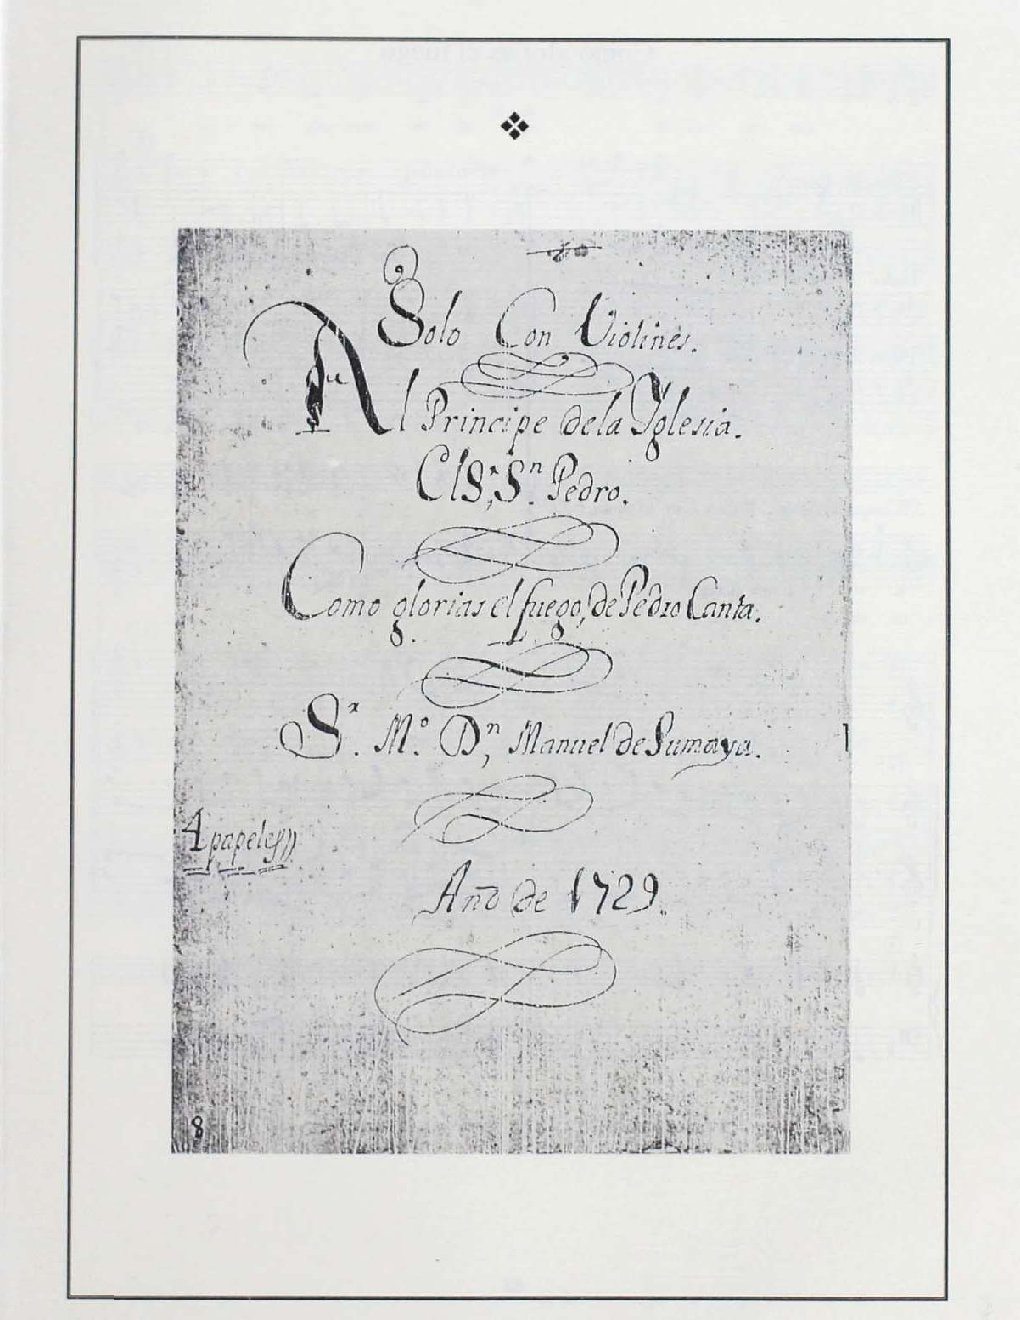 Solo Con Violines.
Al Principe dela Yglesia.
El Sr. Sn. Pedro.
Como glorias el fuego, de Pedro Canta.
Sr. Mo. Dn, Manuel de Sumaya.
4 papeles))
Año de 1729.
8